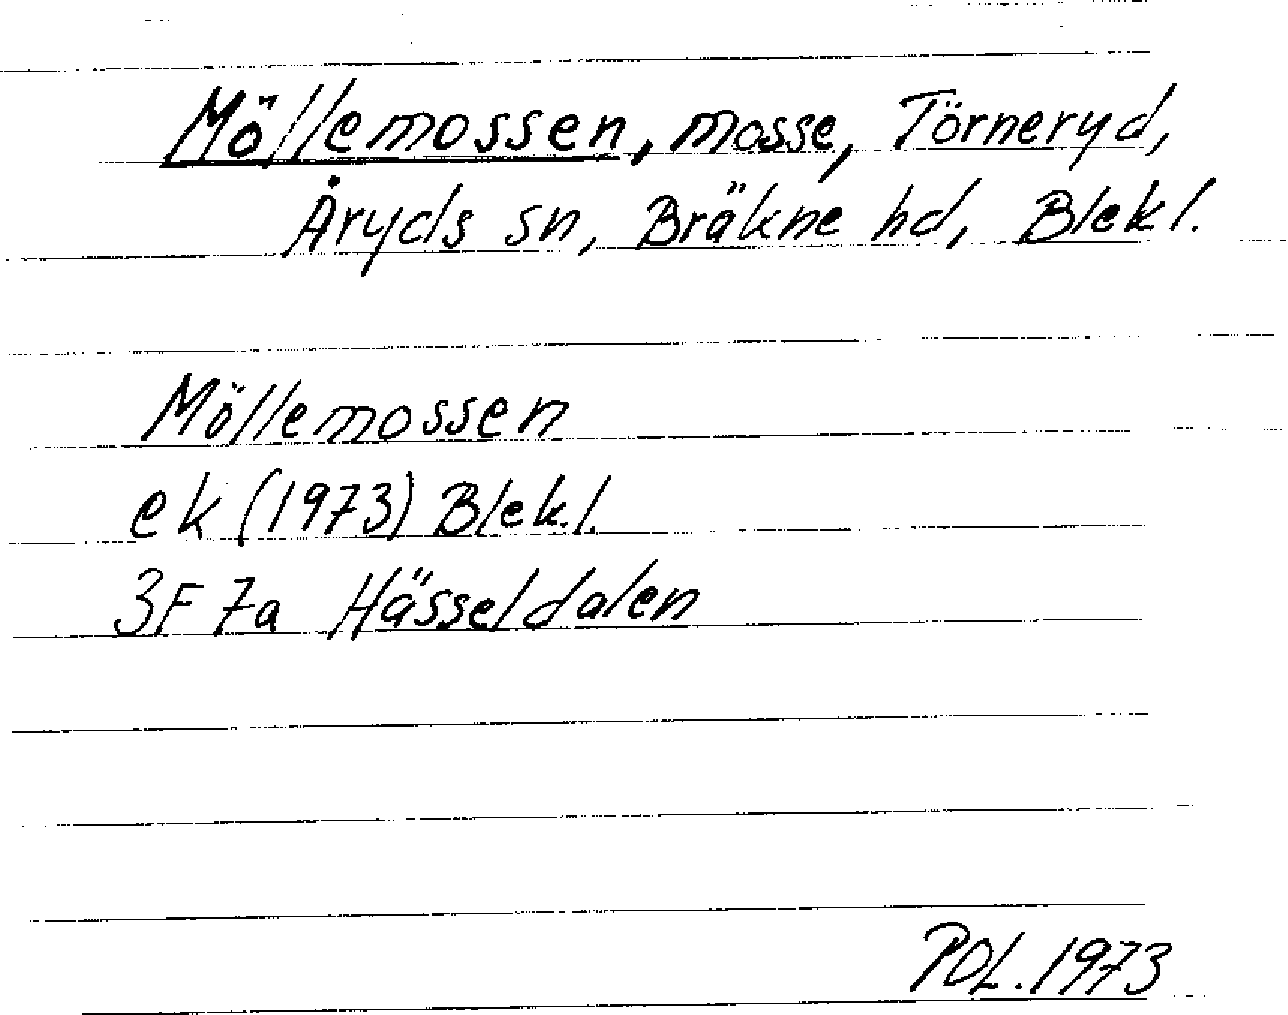 Möllemossen, mosse, Törneryd,
Åryds sn, Bräkne hd, Blekl.
Möllemossen
ek (1973) Blekl.
3F 7a Hässeldalen
POL. 1973